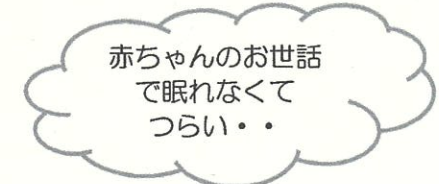 赤ちゃんのお世話
で眠れなくて
つらい・・